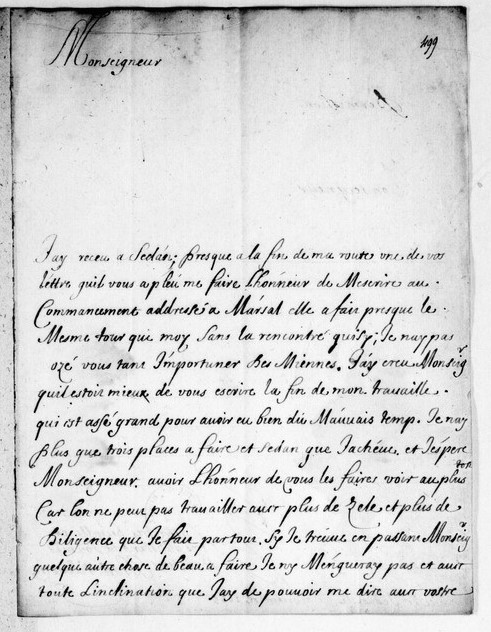 499
Monseigneur
Jay receu a Sedan; presque a la fin de ma route une de vos
léttre quil vous a pleu me faire Lhonneur de Mescrire au
Commancement addressé a Mársal elle a fair presque le
Mesme tour que moy Sans la rencontré quisy; Je nay pas
ozé vous tant Importuner des Miennes. Jáy creu Monseigr
quil estoit mieux dé vous escrire la fin de mon trauaille
qui ist assé grand pour auoir eu bien du Mauuais temp. Je nay
plus que trois places a faire et sedan que Jachéue et Jespere
Monseigneur. auoir Lhonneur de vous les faires voir au plus tost
Car lon ne peut pas trauailler auec plus de Zele et plus de
Diligence que Je fair par tour. Sy Je treuue en passant Monseigr
quelque autre chose de beau a faire Je ny Menqueray pas et auec
toute Linclination que Jay de pouuoir me dire auec vostre